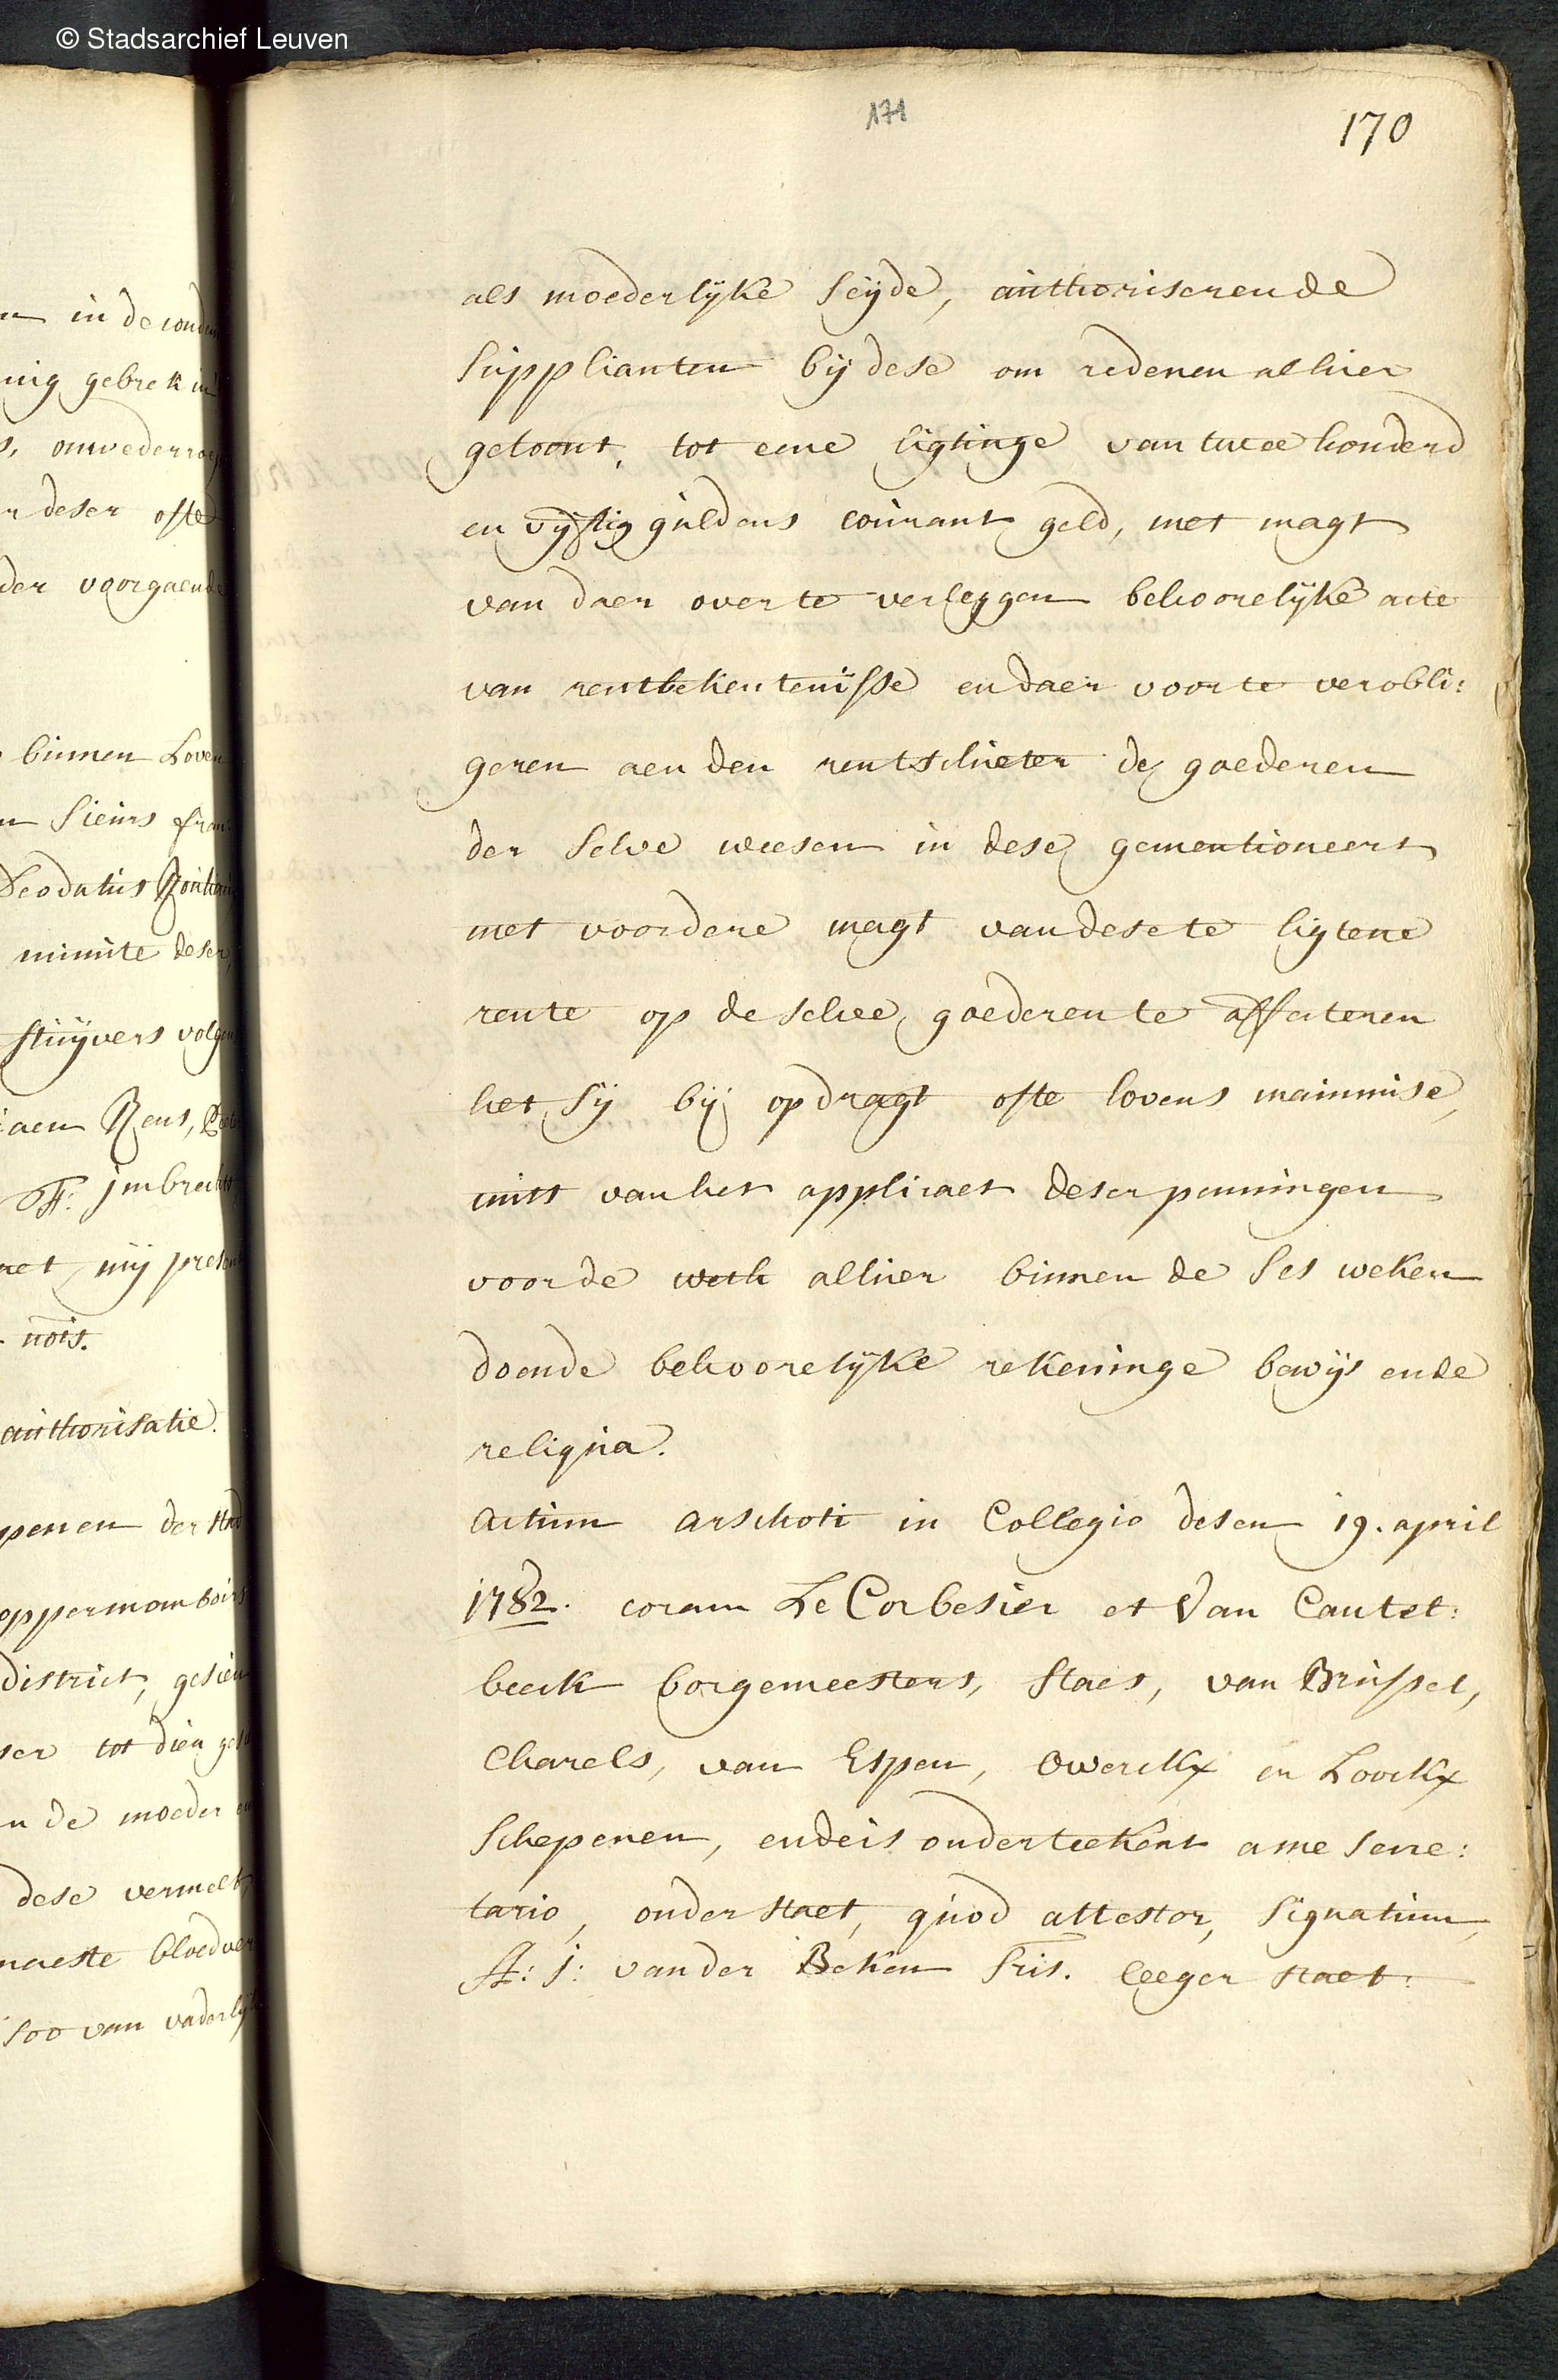 © Stadsarchief Leuven
171
170
n in de cond
nig gebrek in
s, onwederroep
r deser ofte
der voorgaende
binnen Loven
n Sieurs fran
Deodatus
minute deser,
stuÿvers volgen
iaen Rens,
F: jmbrechts
net mij present
nots.
authorisatie.
penen der stad
oppermomboirs
district, gesien
ser tot dien ges
n de moeder en
dese vermelt,
naeste bloedver
soo van vaderlyk
als moederlÿke seÿde, authoriserende
supplianten bÿ dese om redenen alhier
getoont, tot eene ligtinge van twee honderd
en vÿftig guldens courant geld, met magt
van daer over te verleggen behoorelÿke acte
van rentbekentenisse en daer voor te verobli:
geren aen den rentschieter de goederen
der selve weesen in dese gementioneert
met voordere magt van dese te ligtene
rente op de selve goederen te affecteren
het sÿ bÿ opdragt ofte lovens mainmise,
mits van het applicaet deser penningen
voor de weth alhier binnen de ses weken
doende behoorelÿke rekeninge bewÿs ende
reliqua.
Actum arschoti in Collegio desen 19. april
1782. coram Le Corbesier et Van Cantel:
beeck borgemeesters, Staes, van Brussel,
Charels, van Espen, Owerckx en Loockx
schepenen, ende is onderteekent a me secre:
tario, onder staet, quod attestor, signatum,
A: J: vander Beken sris. leeger staet: